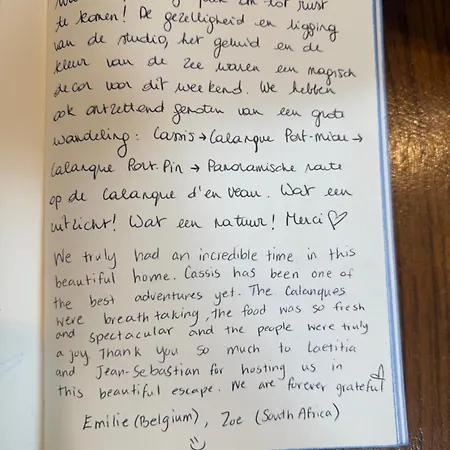 plek om tot rust
te komen! De gezelligheid en ligging
van de studio, het geluid en de
kleur van de zee waren een magisch
decor voor dit weekend. We hebben
ook ontzettend genoten van een grote
wandeling: Cassis → Calanque Port-miou →
Calanque Port-Pin → Panoramische route
op de Calanque d'en veau. Wat een
uitzicht! Wat een natuur! Merci ♡
We truly had an incredible time in this
beautiful home. Cassis has been one of
the best adventures yet. The Calanques
were breathtaking, the food was so fresh
and spectacular and the people were truly
a joy. Thank you so much to Laetitia
and Jean-Sebastian for hosting us in
this beautiful escape. We are forever grateful ♡
Emilie (Belgium), Zoe (South Africa)